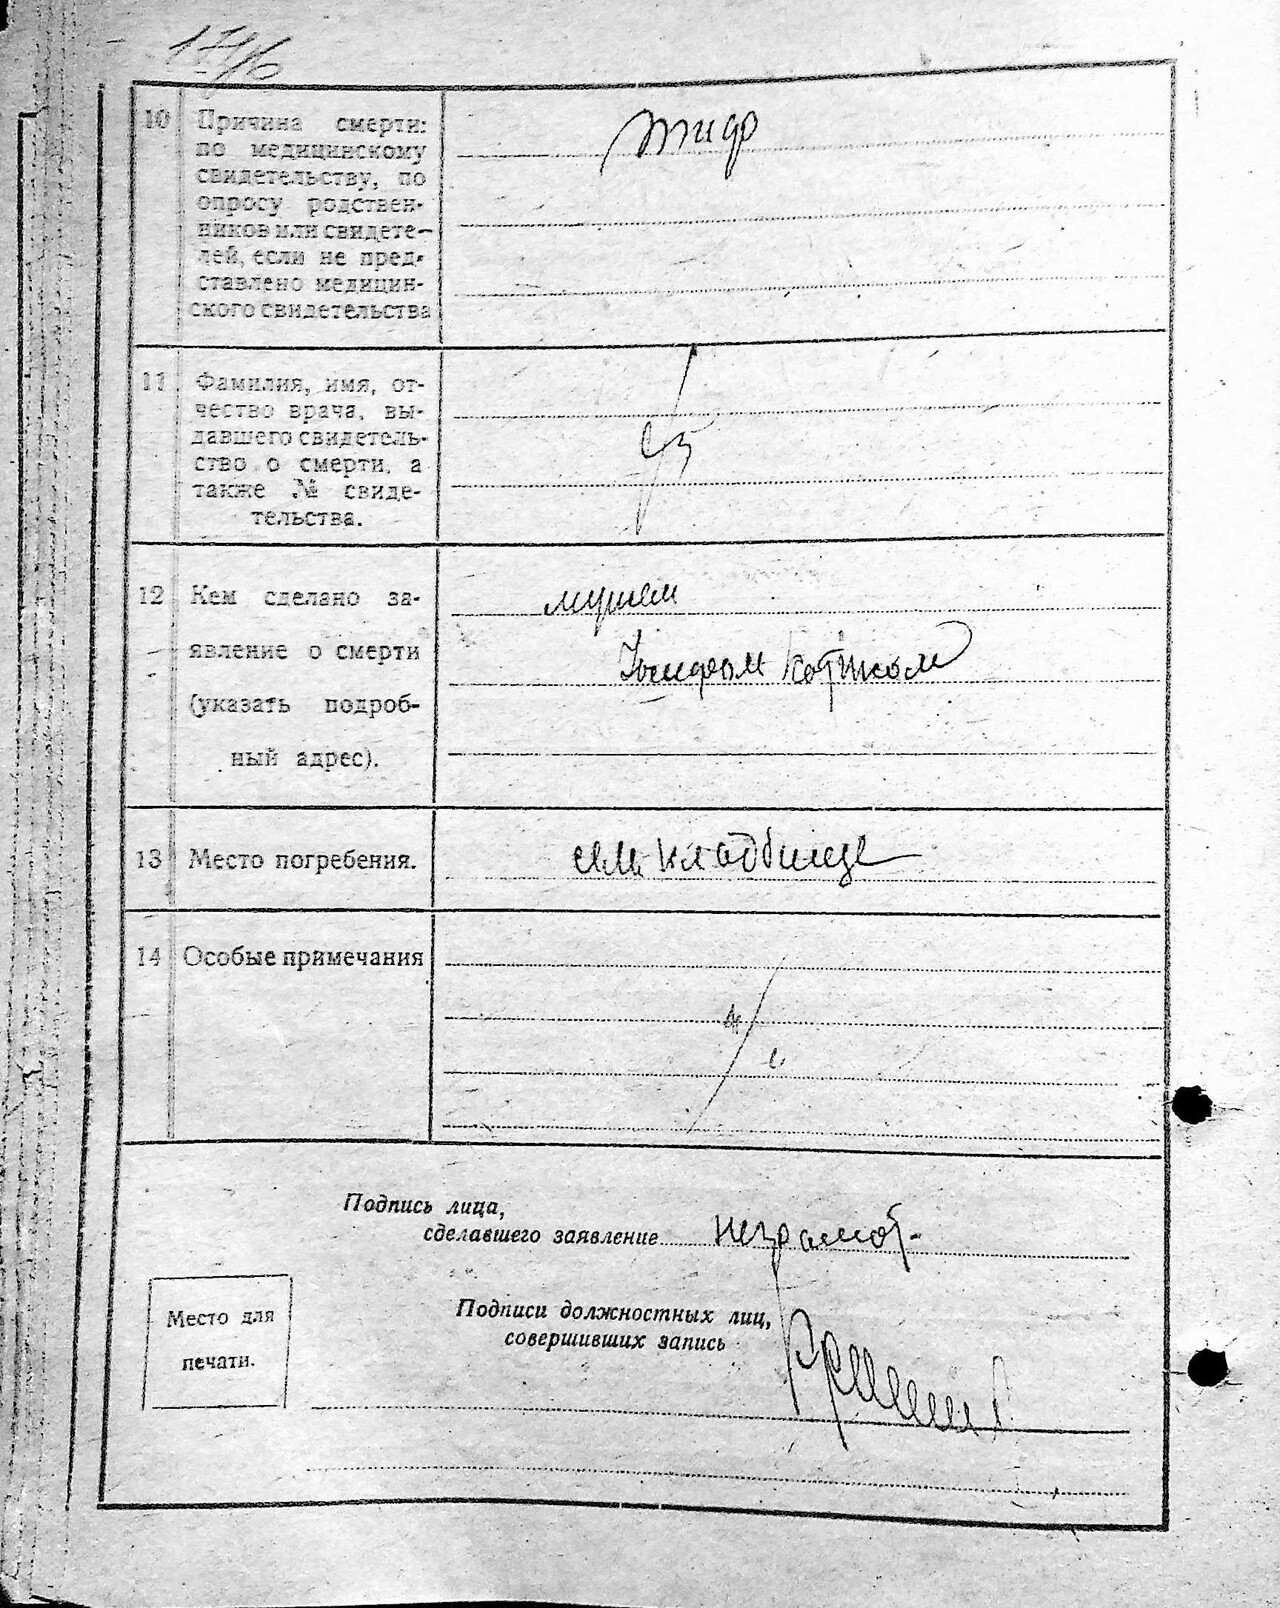 17/6
10 Причина смерти:
по медицинскому
свидетельству, по
опросу родствен-
ников или свидете-
лей, если не пред-
ставлено медицин-
ского свидетельства
тиф
11 Фамилия, имя, от-
чество врача, вы-
давшего свидетель-
ство о смерти, а
также № свиде-
тельства.
12 Кем сделано за-
явление о смерти
(указать подроб-
ный адрес).
мужем
13 Место погребения.
кладбище
14 Особые примечания
Подпись лица,
сделавшего заявление неграмот.
Подписи должностных лиц,
совершивших запись
Место для
печати.